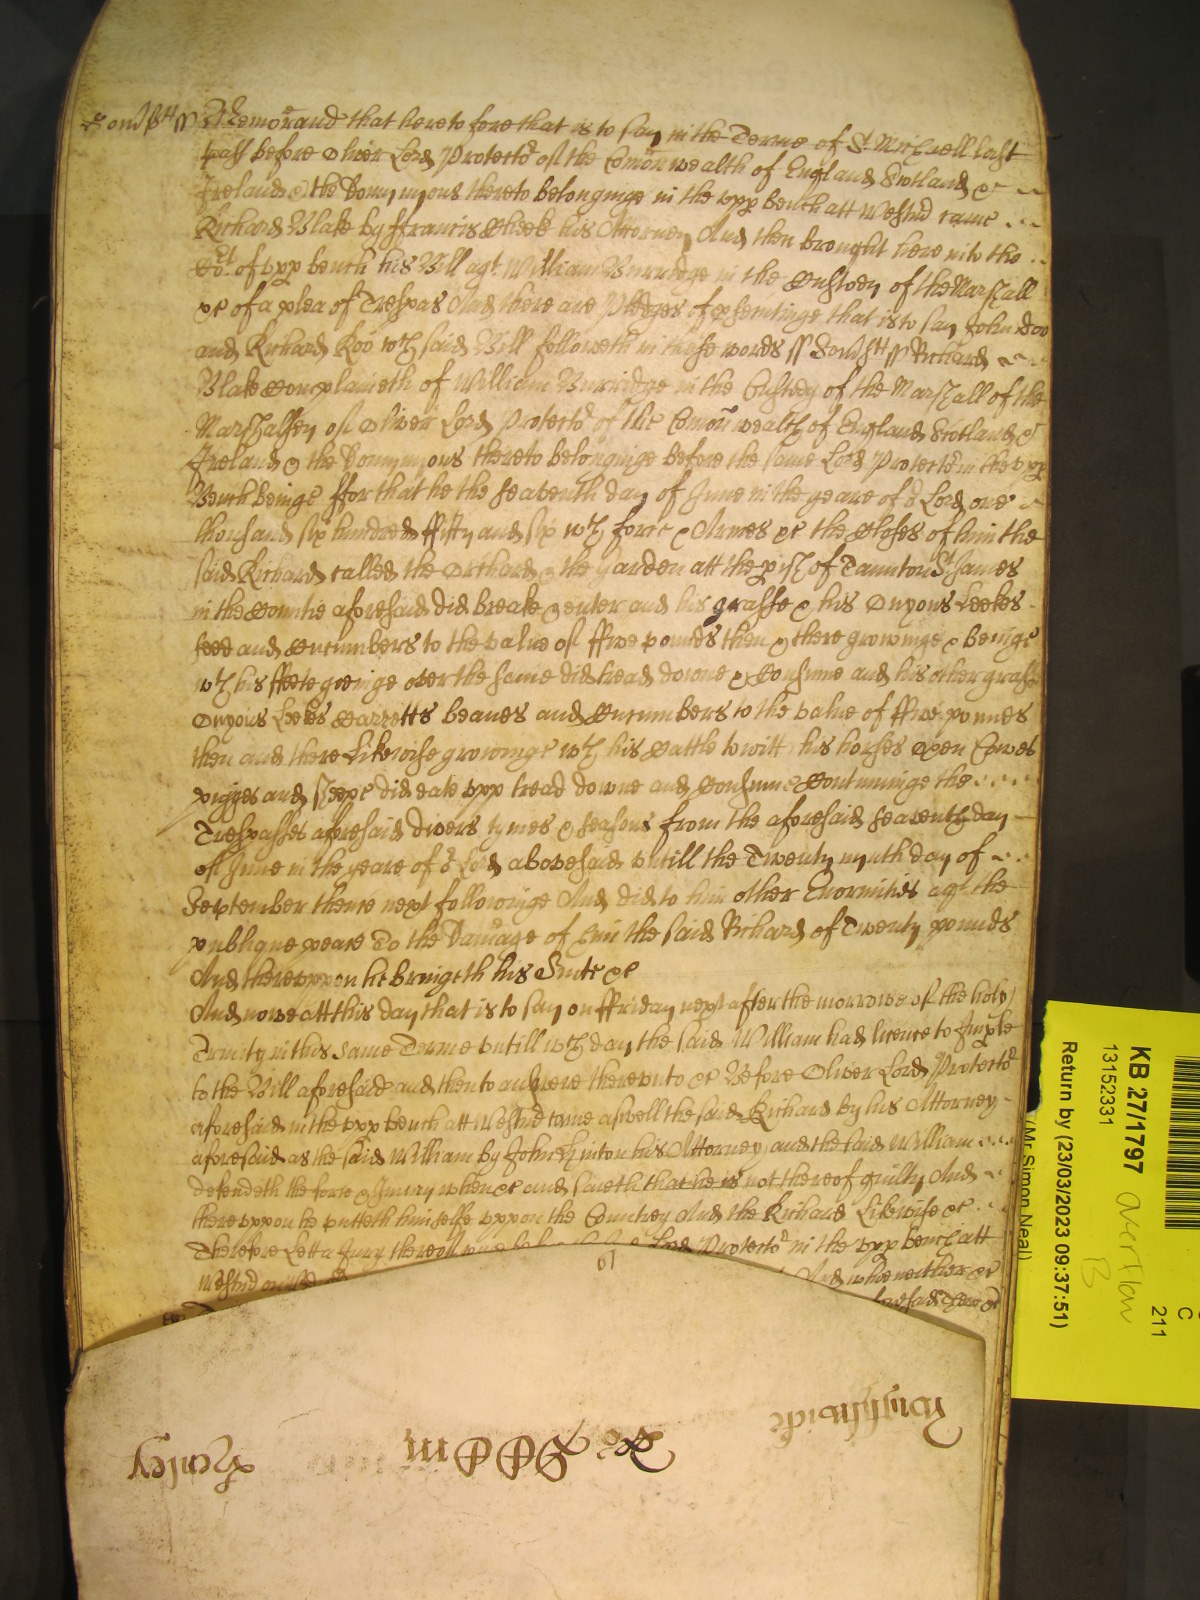 Somstt ss Memorand that heretofore that is to say in the Terme of St Michaell last
past before Oliver Lord Protector of the Comon wealth of England Scotland &
Ireland & the Dominyons thereto belonginge in the upp bench att Westmr came
Richard Blake by ffrancis Cheeke his Attorney And then brought here into the
Cort of upp bench his Bill agt William Burridge in the Custody of the Marshall
&c of a plea of Trespas And there are Pledges of psentinge that is to say John Doo
and Richard Roo wch said Bill followeth in these words ss Somstt ss Richard
Blake Complaineth of William Burridge in the Custody of the Marshall of the
Marshalsey of Oliver Lord Protector of the Comon wealth of England Scotland &
Ireland & the Dominyons thereto belonginge before the same Lord Protector in the upp
Bench beinge ffor that he the seaventh day of June in the yeare of or Lord one
thousand six hundred ffifty and six wth force & Armes &c the Closes of him the
said Richard called the Orchard & the Garden att the pish of Taunton St James
in the Countie aforesaid did breake & enter and his grasse & his Onyons Leekes
seed and Cucumbers to the value of ffive pounds then & there growinge & beinge
wth his ffeete goeinge over the same did tread downe & Consume and his other grasse
Onyons Leekes Carretts beanes and Cucumbers to the value of ffive pounds
then and there Likewise growinge wth his Cattle to witt his horses Oxen Cowes
pigges and sheepe did eate upp tread downe and Consume Continuinge the
Trespasses aforesaid divers tymes & seasons from the aforesaid seaventh day
of June in the yeare of or Lord abovesaid untill the Twenty nynth day of
September thence next followinge And did to him other Enormities agt the
publique peace To the Damage of him the said Richard of Twenty pounds
And thereuppon he bringeth his Suite &c
And nowe att this day that is to say on ffriday next after the morrowe of the holy
Trinity in this same Terme untill wch day the said William had licence to Imple
to the Bill aforesaid and then to answere thereunto &c Before Oliver Lord Protector
aforesaid in the upp bench att Westmr came aswell the said Richard by his Attorney
aforesaid as the said William by John Hinton his Attorney and the said William
defendeth the force & Iniury when &c and saieth that he is not thereof guilty And
thereuppon he putteth himselfe uppon the Countrey And the Richard Likewise &c
Therefore Lett a Jury thereof Lord Protector in the upp bench att
Westmr And whoe neither &c
aforesaid
61
Warwick
KB 27/1797
13152331
Return by (23/03/2023 09:37:51)
(Mr Simon Neal)
Overflow
B
C
211